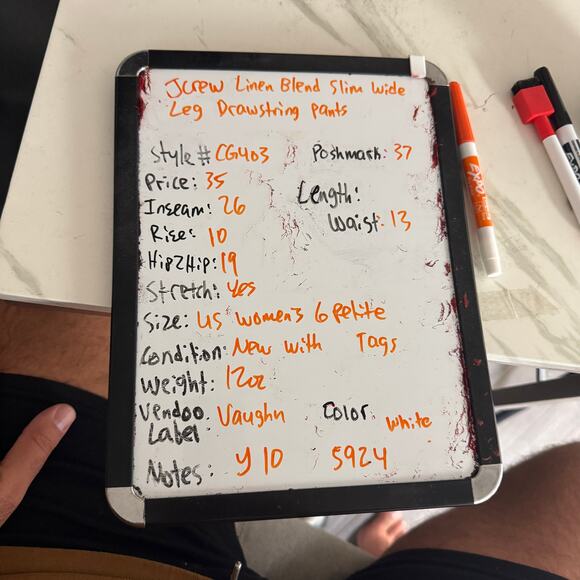 Jcrew Linen Blend Slim Wide
Leg Drawstring pants
Style # CG403 Poshmark: 37
Price: 35
Length:
Inseam: 26
Waist: 13
Rise: 10
Hip2Hip: 19
Stretch: yes
Size: US women's 6 Petite
Condition: New with Tags
Weight: 12oz
Vendoo Label: Vaughn Color: white
Notes: Y10 5924
EXPO